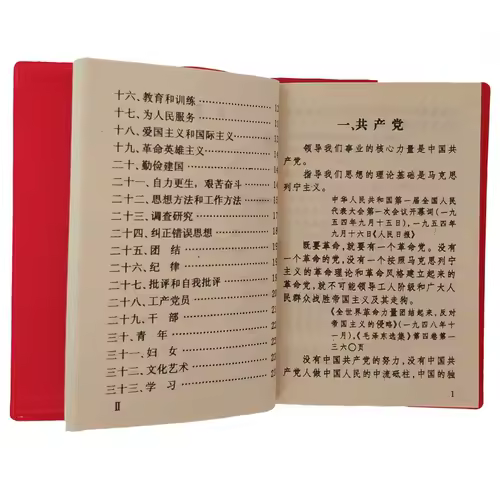 十六、教育和训练
十七、为人民服务
十八、爱国主义和国际主义
十九、革命英雄主义
二十、勤俭建国
二十一、自力更生，艰苦奋斗
二十二、思想方法和工作方法
二十三、调查研究
二十四、纠正错误思想
二十五、团 结
二十六、纪 律
二十七、批评和自我批评
二十八、工产党员
二十九、干 部
三十、青 年
三十一、妇 女
三十二、文化艺术
三十三、学 习
II
一.共产党
领导我们事业的核心力量是中国共
产党。
指导我们思想的理论基础是马克思
列宁主义。
中华人民共和国第一届全国人民
代表大会第一次会议开幕词（一九
五四年九月十五日），一九五四年
九月十六日《人民日报》
既要革命，就要有一个革命党。没有
一个革命的党，没有一个按照马克思列宁
主义的革命理论和革命风格建立起来的
革命党，就不可能领导工人阶级和广大人
民群众战胜帝国主义及其走狗。
《全世界革命力量团结起来，反对
帝国主义的侵略》（一九四八年十一
月），《毛泽东选集》第四卷第一
三六〇页
没有中国共产党的努力，没有中国共
产党人做中国人民的中流砥柱，中国的独
1